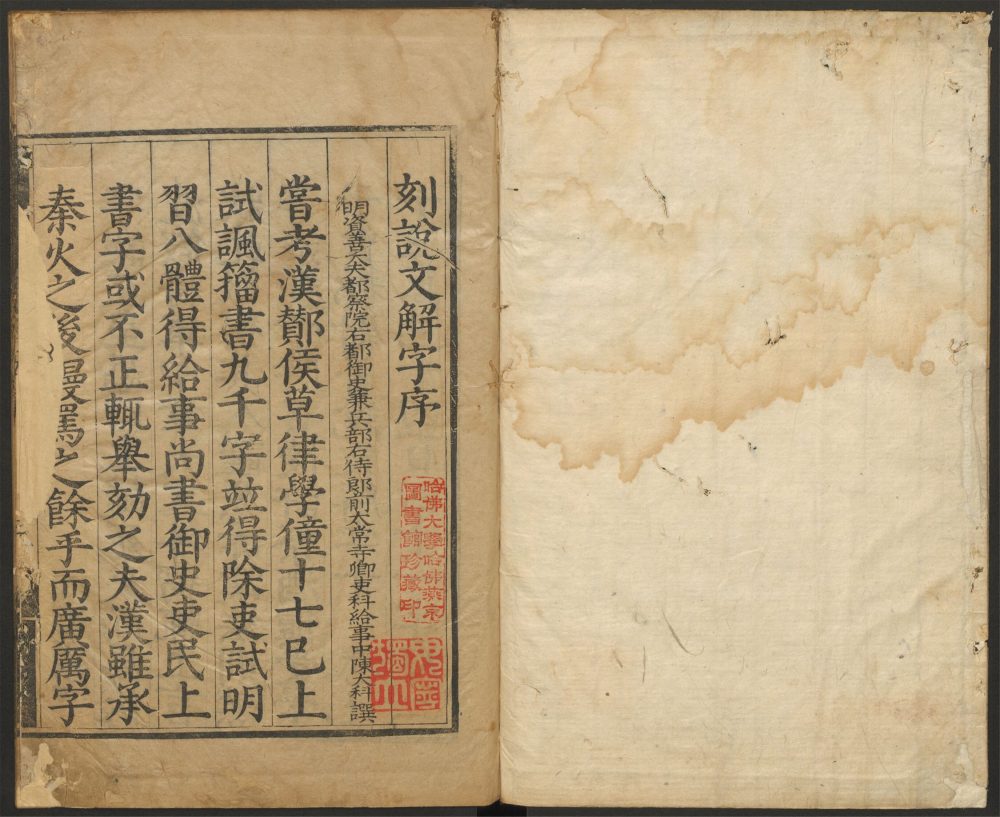 刻說文解字序
哈佛大學哈佛燕京
圖書館珍藏印
明資善大夫都察院右都御史兼兵部右侍郎前太常寺卿吏科給事中陳大科譔
嘗考漢酇侯草律學僮十七巳上
試諷籒書九千字竝得除吏試明
習八體得給事尚書御史吏民上
書字或不正輒舉劾之夫漢雖承
秦火之後嫚罵之餘乎而廣厲字